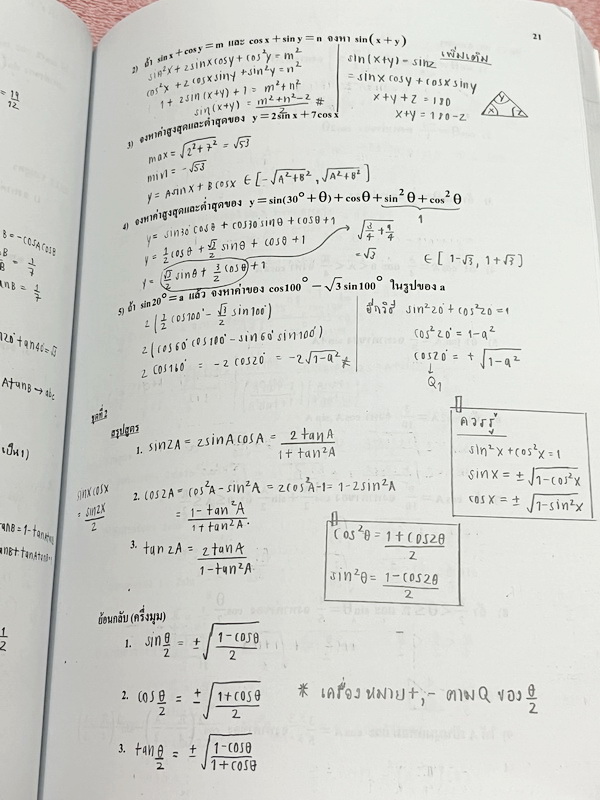 21
2) ถ้า sin x + cos y = m และ cos x + sin y = n จงหา sin(x + y)
sin²x + 2sinxcosy + cos²y = m²
cos²x + 2cosxsiny + sin²y = n²
1 + 2sin(x+y) + 1 = m² + n²
sin(x+y) = (m² + n² - 2)/2 #
เพิ่มเติม
sin(x+y) = sinz
= sinxcosy + cosxsiny
x+y+z = 180
x+y = 180-z
Y
X Z
3) จงหาค่าสูงสุดและต่ำสุดของ y = 2sin x + 7cos x
max = √(2² + 7²) = √53
mivl = -√53
y = Asinx + Bcosx ∈ [-√(A²+B²), √(A²+B²)]
4) จงหาค่าสูงสุดและต่ำสุดของ y = sin(30° + θ) + cos θ + sin²θ + cos²θ
1
y = sin30°cosθ + cos30°sinθ + cosθ + 1
y = 1/2 cosθ + √3/2 sinθ + cosθ + 1
y = √3/2 sinθ + 3/2 cosθ + 1
√(3/4 + 9/4)
= √3
∈ [1-√3, 1+√3]
5) ถ้า sin 20° = a แล้ว จงหาค่าของ cos100° - √3 sin100° ในรูปของ a
2(1/2 cos100° - √3/2 sin100°)
2(cos60°cos100° - sin60°sin100°)
2cos160° = -2cos20° = -2√(1-a²) *
อีกวิธี sin²20° + cos²20 = 1
cos²20° = 1-a²
cos20° = +√(1-a²)
↓
Q₁
ชุดที่ 2
สรุปสูตร
1. sin2A = 2sinAcosA = 2tanA/(1+tan²A)
sinxcosx
= sin2x/2
2. cos2A = cos²A - sin²A = 2cos²A-1 = 1-2sin²A
= (1-tan²A)/(1+tan²A)
3. tan2A = 2tanA/(1-tan²A)
ควรรู้
sin²x + cos²x = 1
sinx = ±√(1-cos²x)
cosx = ±√(1-sin²x)
cos²θ = (1+cos2θ)/2
sin²θ = (1-cos2θ)/2
ย้อนกลับ (ครึ่งมุม)
1. sin θ/2 = ±√((1-cosθ)/2)
2. cos θ/2 = ±√((1+cosθ)/2)
3. tan θ/2 = ±√((1-cosθ)/(1+cosθ))
* เครื่องหมาย +,- ตาม Q ของ θ/2